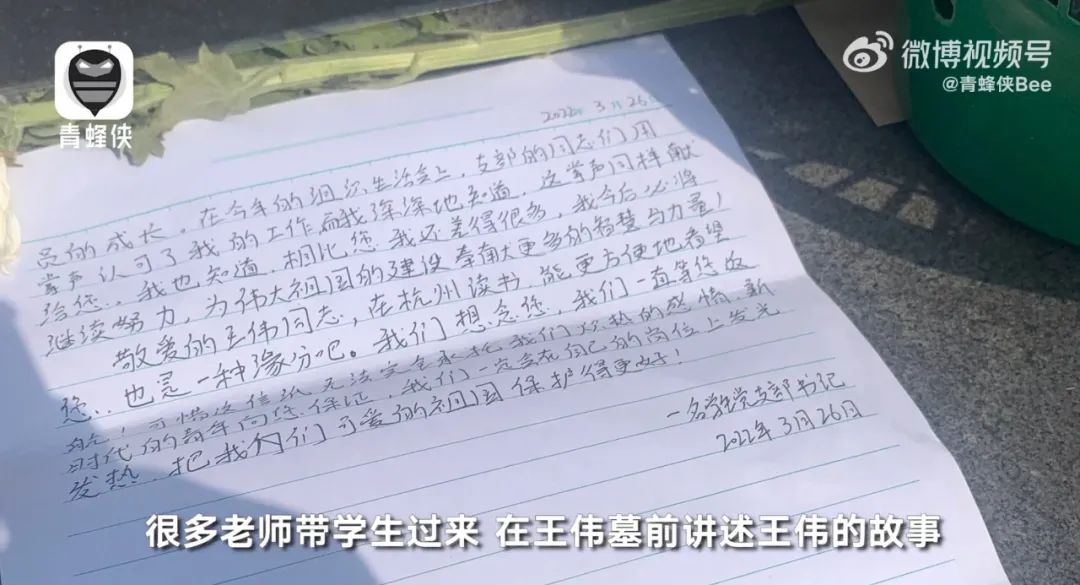 青蜂侠
微博视频号
@青蜂侠Bee
2022年3月26日
员的成长。在今年的组织生活会上，支部的同志们用
掌声认可了我的工作，而我深深地知道，这掌声同样献
给您。我也知道，相比您，我还差得很多，我今后必将
继续努力，为伟大祖国的建设奉献更多的智慧与力量！
敬爱的王伟同志，在杭州读书，能更方便地看望
您，也是一种缘分吧。我们想念您，我们一直等您返
航！可惜这信纸无法完全承托我们炽热的感情，新
时代的青年向您保证，我们一定会在自己的岗位上发光
发热，把我们可爱的祖国保护得更好！
一名学生党支部书记
2022年3月26日
很多老师带学生过来 在王伟墓前讲述王伟的故事